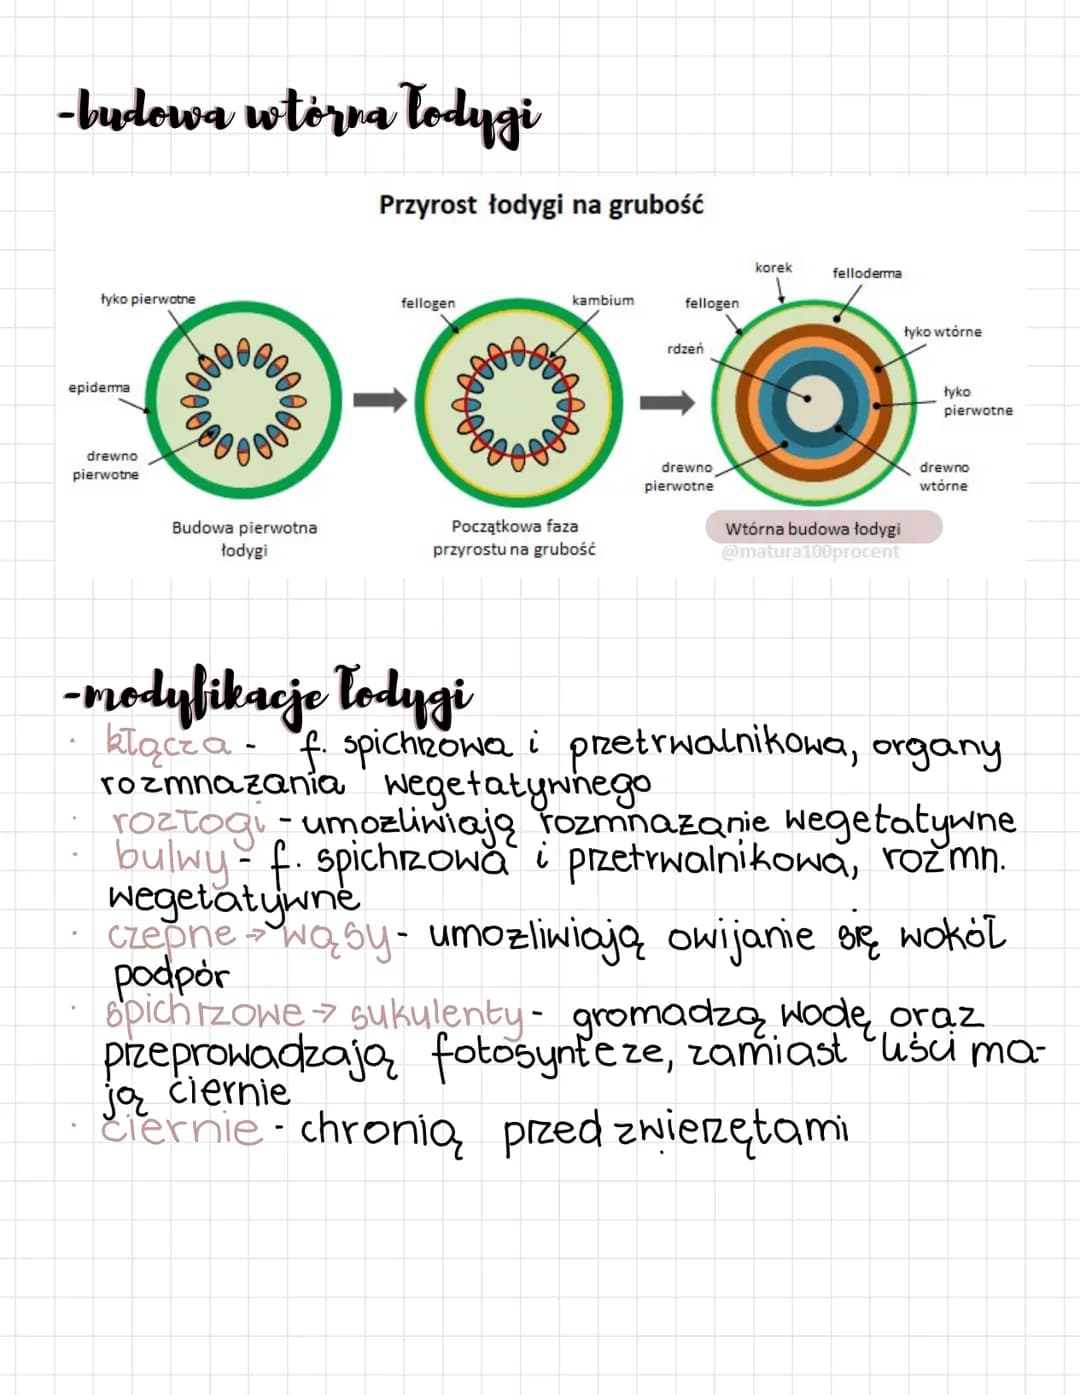 -budowa wtórna łodygi
Przyrost łodygi na grubość
korek
felloderma
łyko pierwotne
fellogen
kambium
fellogen
łyko wtórne
rdzeń
epiderma
łyko
pierwotne
drewno
pierwotne
drewno
pierwotne
drewno
wtórne
Budowa pierwotna
łodygi
Początkowa faza
przyrostu na grubość
Wtórna budowa łodygi
@matura100procent
-modyfikacje łodygi
· kłącza - f. spichrzowa i przetrwalnikowa, organy
rozmnażania wegetatywnego
· rozłogi - umożliwiają rozmnażanie wegetatywne
· bulwy - f. spichrzowa i przetrwalnikowa, rozmn.
wegetatywne
· czepne → wąsy - umożliwiają owijanie się wokół
podpór
· spichrzowe → sukulenty - gromadzą wodę oraz
przeprowadzają fotosyntezę, zamiast liści ma-
ją ciernie
· ciernie - chronią przed zwierzętami